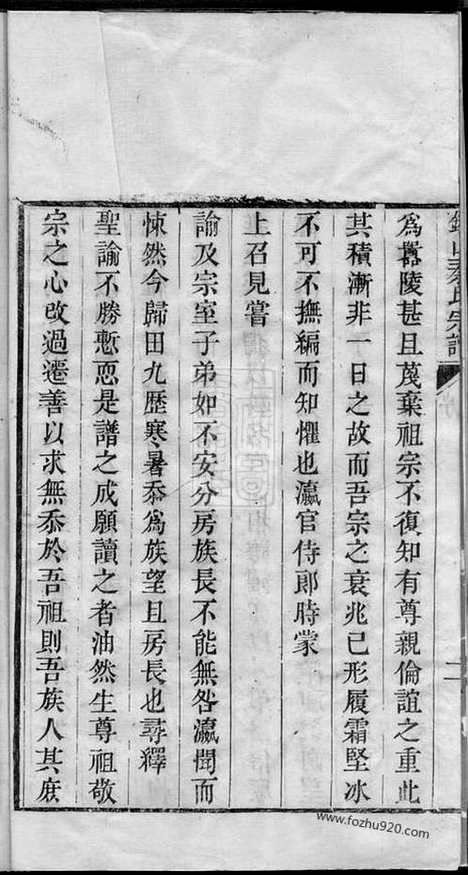 為囂陵甚且蔑棄祖宗不復知有尊親倫誼之重此
其積漸非一日之故而吾宗之衰兆已形履霜堅冰
不可不撫編而知懼也瀛官侍郎時蒙
上召見嘗
諭及宗室子弟如不安分房族長不能無咎瀛聞而
悚然今歸田九歷寒暑忝為族望且房長也尋繹
聖諭不勝慙恧是譜之成願讀之者油然生尊祖敬
宗之心改過遷善以求無忝於吾祖則吾族人其庶
www.fozhu920.com